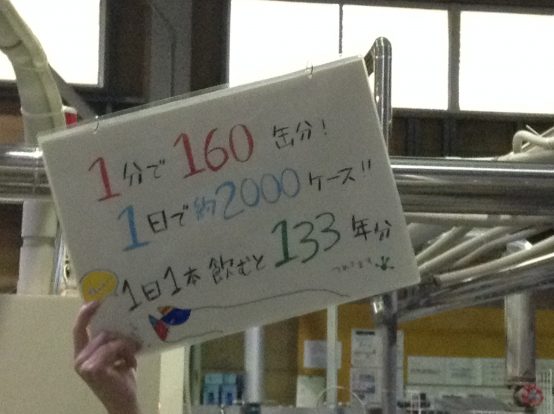 1分で160缶分!
1日で約2000ケース!!
1日1本飲むと133年分
つめてます